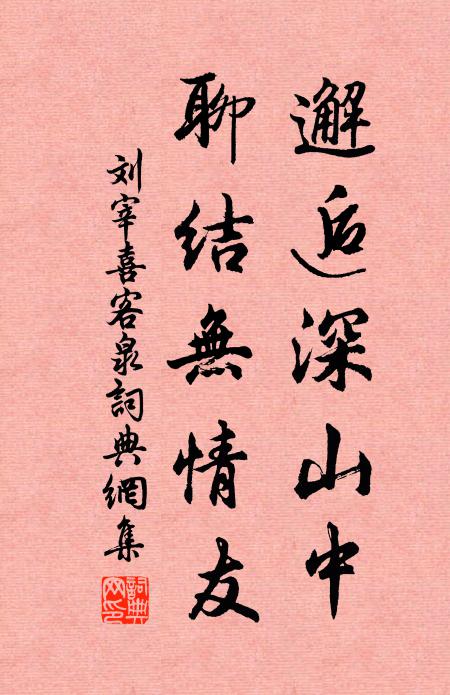 邂逅深山中
聊结無情友
刘宰喜客泉詞典網集
詞典网印